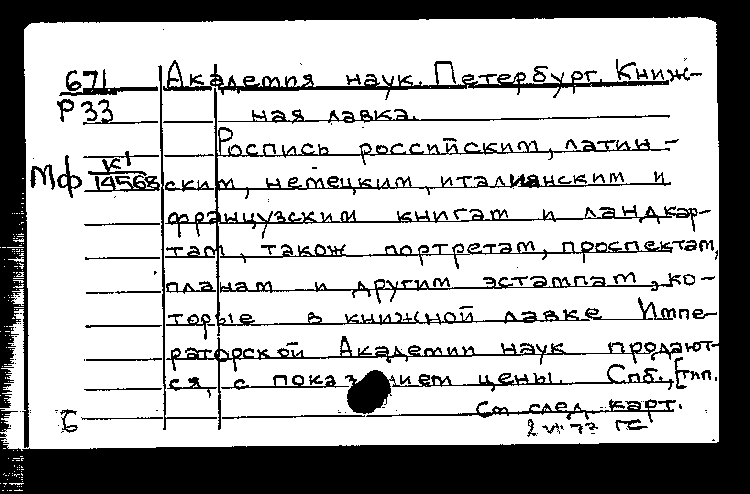 671 Академия наук. Петербург. Книж-
Р 33 ная лавка.
Роспись российским, латин-
Мф К1/14568 ским, немецким, италиянским и
французским книгам и ландкар-
там, також портретам, проспектам,
планам и другим эстампам, ко-
торые в книжной лавке Импе-
раторской Академии наук продают-
ся, с показанием цены. Спб., [тип.
См след. карт.
Б